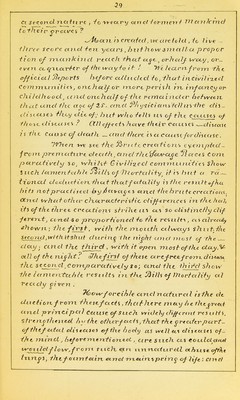 29
a second nature, to weary and torment Mankind
to their graves?
Man is created, we are told, to live
three score and ten years, but how small a propor
tion of mankind reach that age, or half way, or
even a quarter of the way to it? We learn from the
official Reports before alluded to, that in civilized
communities, one half or more perish in infancy or
childhood, and one half of the remainder between
that and the age of 25. and Physicians tell us the dis-
diseases they die of; but who tells us of the causes of
those diseases? All effects have their causes — disease
is the cause of death — and there is a cause for disease.
When we see the Brute creations exempted
from premature death, and the Savage Races com
paratively so, whilst Civilized communities show
such lamentable Bills of Mortality, it is but a ra-
tional deduction that that fatality is the result of ha
bits not practised by Savages and the brute creations;
and what other characteristic differences in the hab
its of the three creations strike us as so distinctly dif
ferent, and so proportioned to the results, as already
shown; the first, with the mouth always shut, the
second, with it shut during the night and most of the
day; and the third, with it open most of the day, &
all of the night? The first of these are free from disease;
the second, comparatively so; and the third show
the lamentable results in the Bills of Mortality al
ready given.
How forcible and natural is the de
duction from these facts, that here may be the great
and principal cause of such widely different results,
strengthened by the other facts, that the greater part
of the fatal diseases of the body as well as diseases of
the mind, before mentioned, are such as could and
would flow, from such an unnatural abuse of the
lungs, the fountain and mainspring of life; and